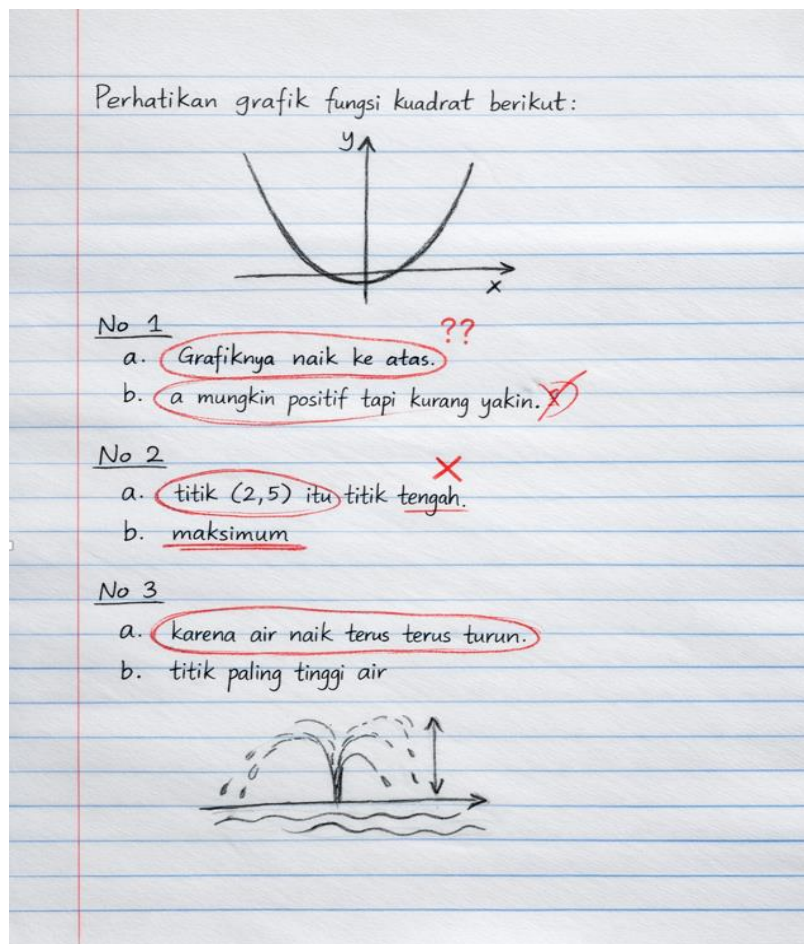 Perhatikan grafik fungsi kuadrat berikut:
y
x
No 1
??
a. Grafiknya naik ke atas.
b. a mungkin positif tapi kurang yakin.
No 2
a. titik (2,5) itu titik tengah.
b. maksimum
No 3
a. karena air naik terus terus turun.
b. titik paling tinggi air